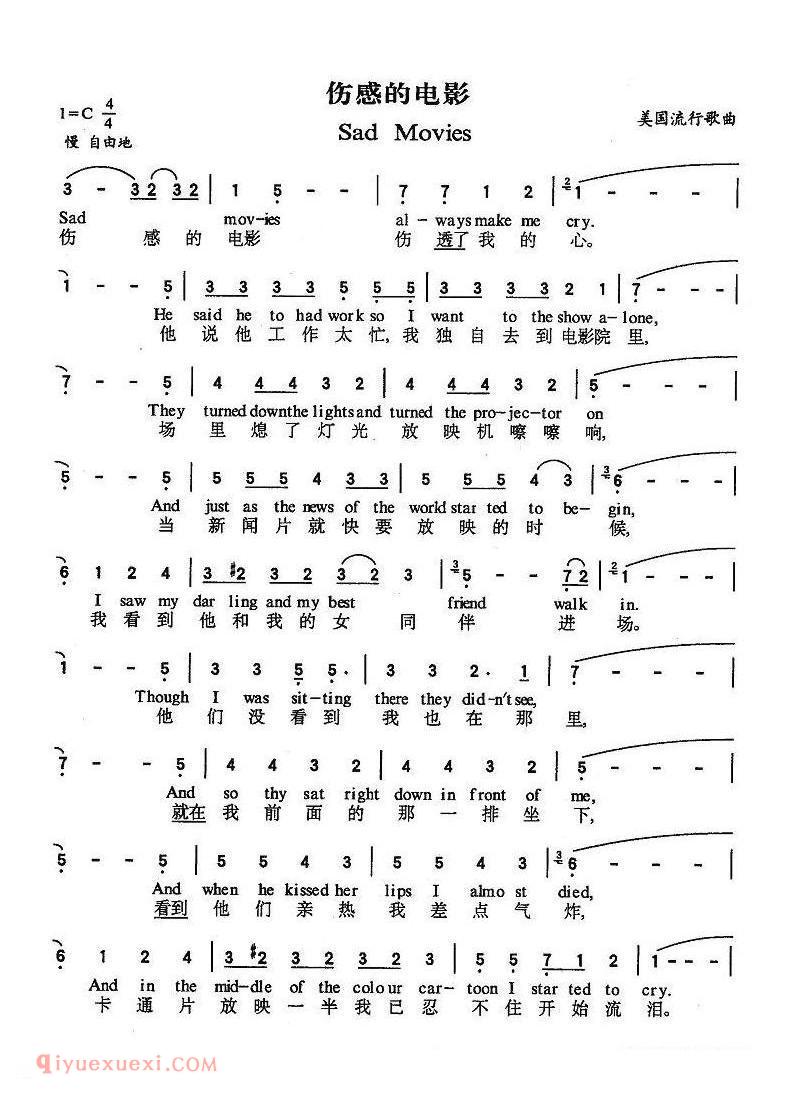 伤感的电影
1=C 4/4
美国流行歌曲
Sad Movies
慢 自由地
3 - 3 2 3 2 | 1 5 - - | 7 7 1 2 | 2 1 - - - |
Sad mov-ies al-ways make me cry.
伤 感 的 电影 伤 透了 我 的 心。
1 - - 5 | 3 3 3 3 5 5 5 | 3 3 3 3 2 1 | 7 - - - |
He said he to had work so I want to the show a-lone,
他 说 他 工 作 太 忙, 我 独 自 去 到 电影院 里,
7 - - 5 | 4 4 4 3 2 | 4 4 4 3 2 | 5 - - -
They turned downthe lights and turned the pro-jec-tor on
场 里 熄 了 灯 光 放 映 机 嚓 嚓 响,
5 - - 5 | 5 5 5 4 3 3 | 5 5 5 4 3 | 3 6 - - - |
And just as the news of the world star ted to be-gin,
当 新 闻 片 就 快 要 放 映 的 时 候,
6 1 2 4 | 3 #2 3 2 3 2 3 | 3 5 - - 7 2 | 2 1 - - - |
I saw my dar ling and my best friend walk in.
我 看 到 他 和 我 的 女 同 伴 进 场。
1 - - 5 | 3 3 5 5 . | 3 3 2 . 1 | 7 - - - |
Though I was sit-ting there they did-n't see,
他 们 没 看 到 我 也 在 那 里,
7 - - 5 | 4 4 3 2 | 4 4 3 2 | 5 - - - |
And so thy sat right down in front of me,
就在 我 前 面 的 那 一 排 坐 下,
5 - - 5 | 5 5 4 3 | 5 5 4 3 | 3 6 - - - |
And when he kissed her lips I almo st died,
看到 他 们 亲 热 我 差 点 气 炸,
6 1 2 4 | 3 #2 3 2 3 2 3 | 5 5 7 1 2 | 1 - - - |
And in the mid-dle of the colour car-toon I star ted to cry.
卡 通 片 放 映 一 半 我 已 忍 不 住 开 始 流 泪。
qiyuexuexi.COM